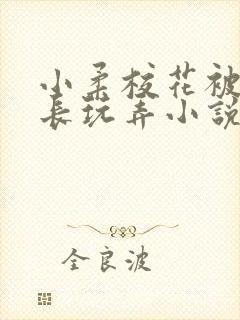 小柔校花被
長玩弄小說
全良波